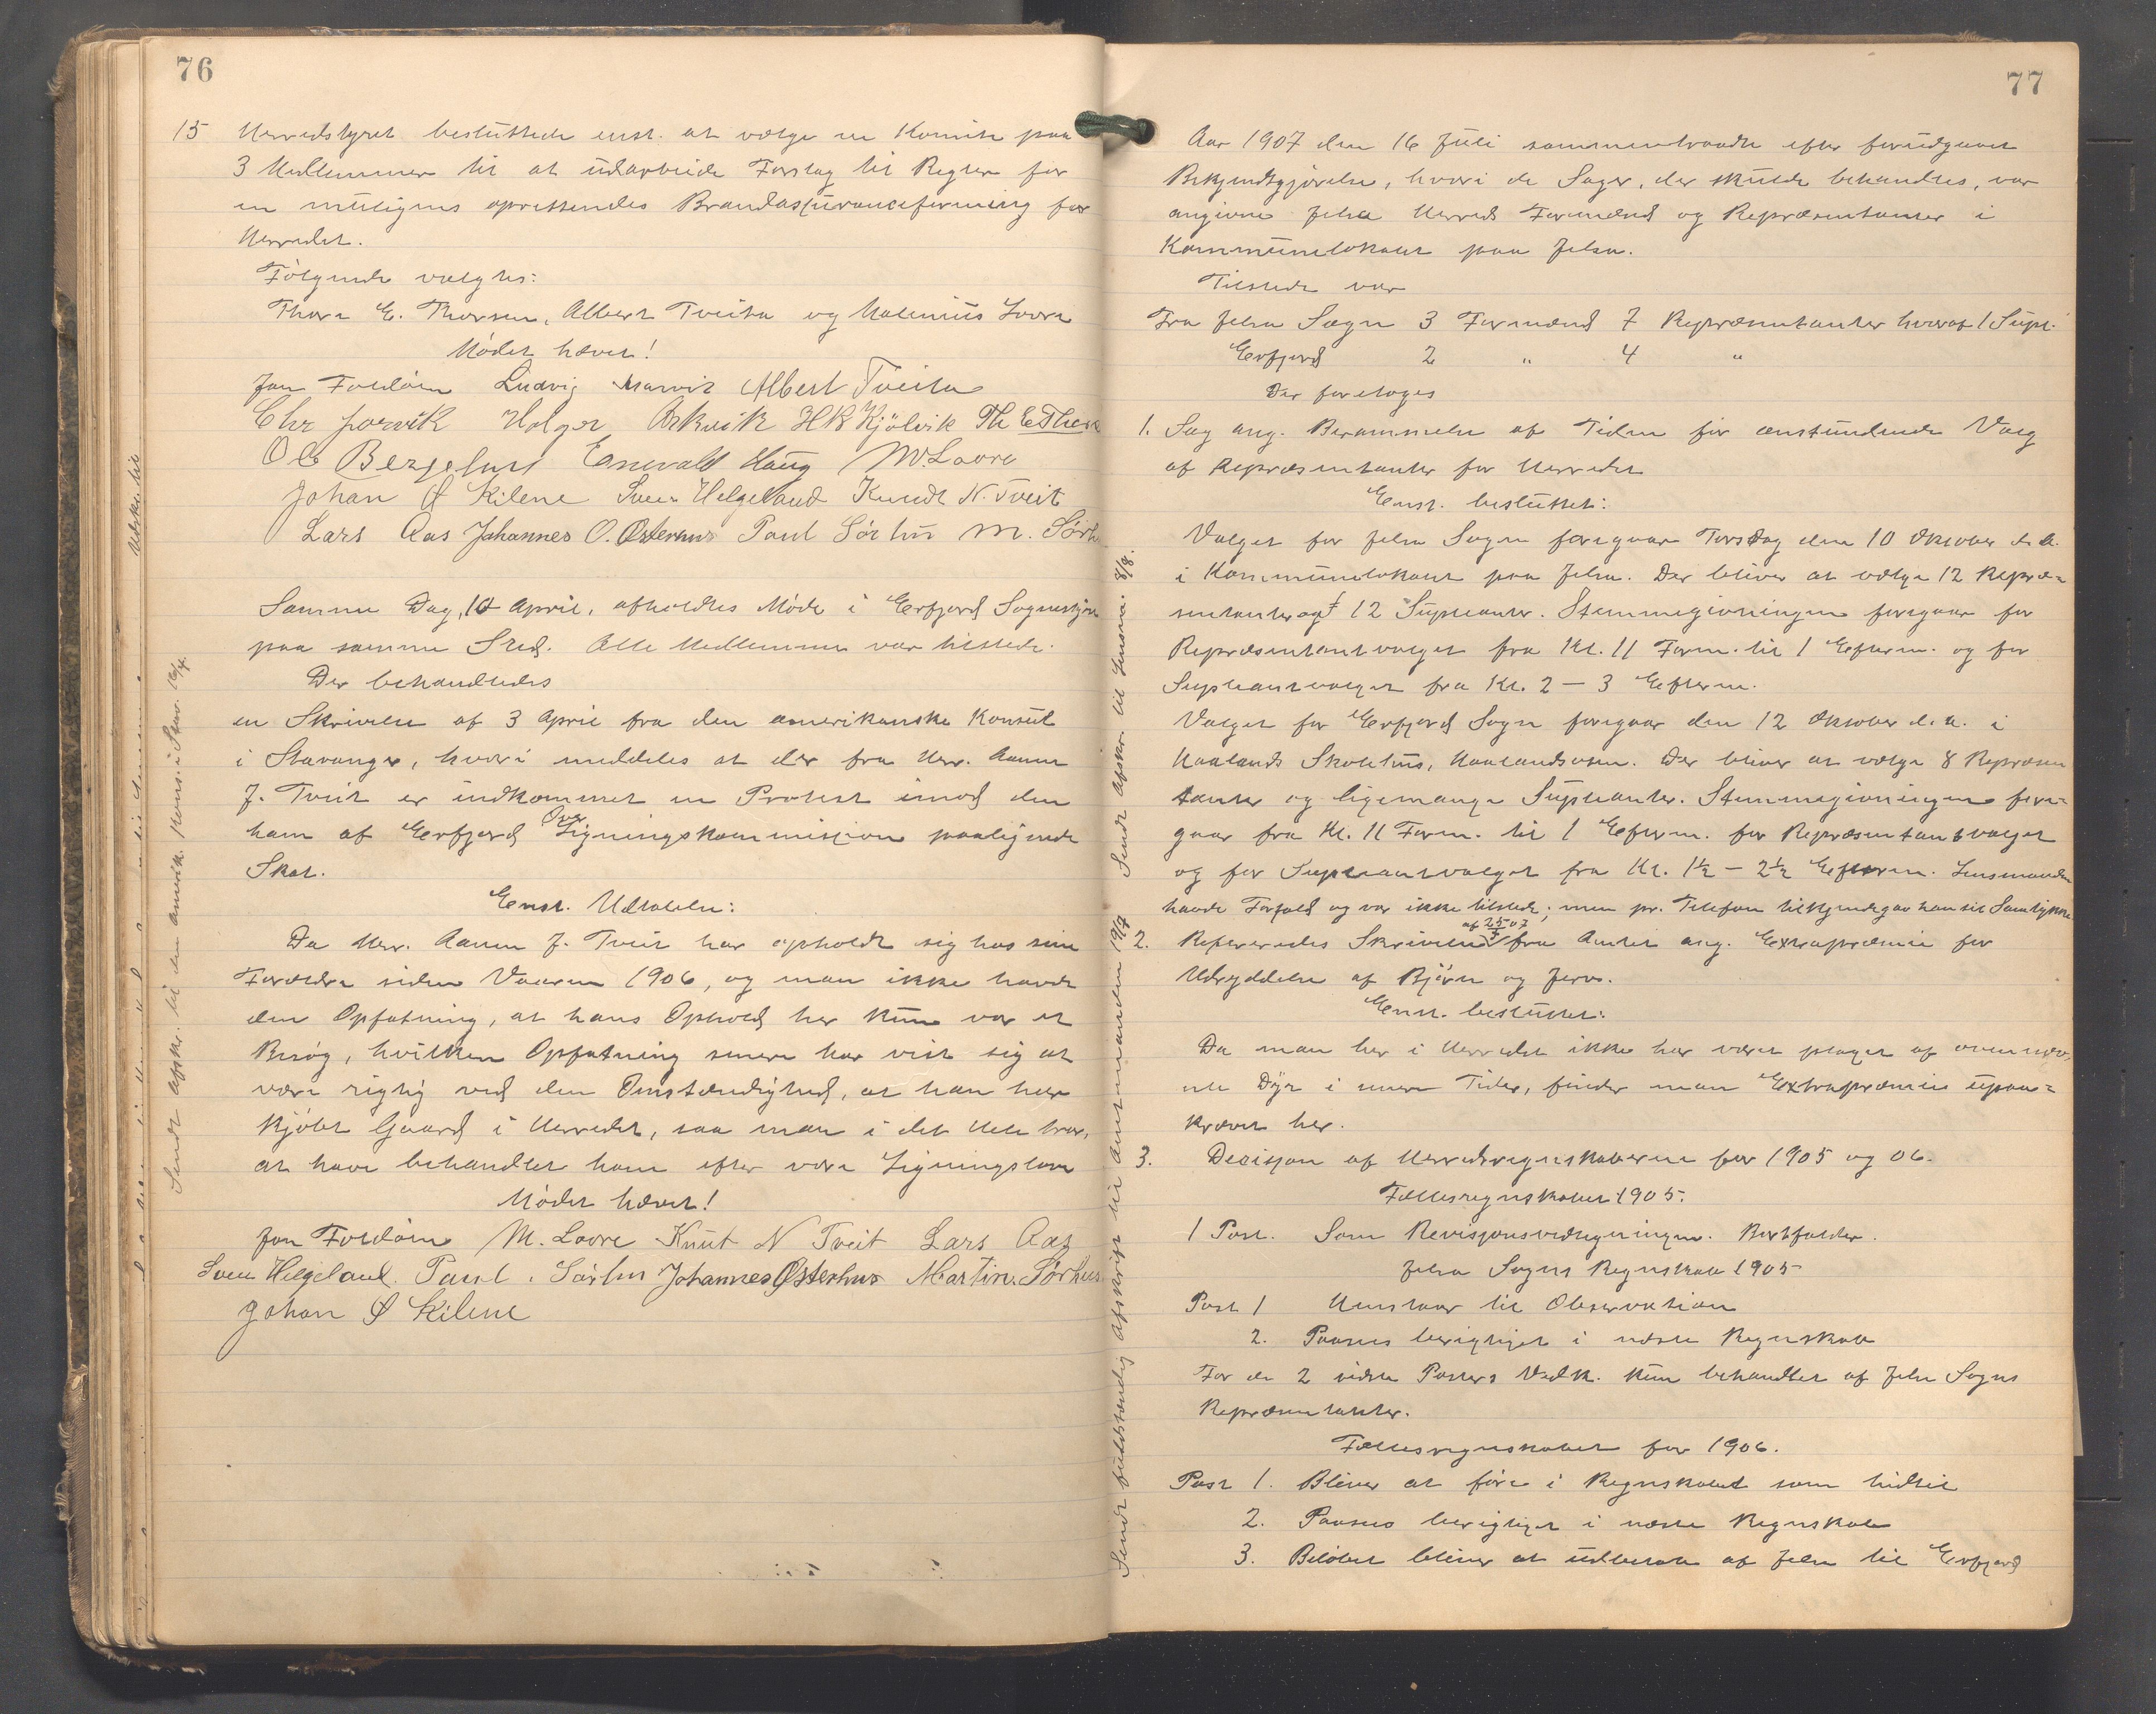 76
15 Herredstyret besluttede enst. at vælge en Komite paa
3 Medlemmer til at udarbeide Forslag til Regler for
en muligens oprettendes Brandassuranceforening for
Herredet.
Følgende valgtes:
Thore E. Thorsen, Albert Tveita og Malenius Lovra
Mødet hævet!
Jon Foldøen Ludvig Albert Tveita
Chr Jorvik Holger Arkvik H K Kjölvik Th E Thors
Ole Bergelund Enevald Haug M. Lovre
Johan Ø Kilene Svein Helgeland Knudt N. Tveit
Lars Aas Johannes O. Østerhus Paul Sørhus M. Sørh
Samme Dag, 10 April, afholdtes Møde i Erfjord Sognestyre
paa samme Sted. Alle Medlemmer var tilstede.
Der behandledes
en Skrivelse af 3 April fra den amerikanske Konsul
i Stavanger, hvori meddeles at der fra Herr. Aamen
J. Tveit er indkommet en Protest imod den
ham af Erfjord Over Ligningskommission paalignede
Skat.
Enst. Udtalelse:
Da Herr. Aamen J. Tveit har opholdt sig hos sine
Forældre siden Vaaren 1906, og man ikke havde
den Opfatning, at hans Ophold her kun var et
Besøg, hvilken Opfatning senere har vist sig at
være rigtig ved den Omstændighed, at han her
kjøbt Gaard i Herredet, saa man i det Hele tror,
at have behandlet ham efter vore Ligningslove
Mødet hævet!
Jon Foldøen M. Lovre Knut N Tveit Lars Aas
Svein Helgeland. Paul. Sørhus Johannes Østerhus Martin. Sørhus
Johan Ø Kilene
Sendt Afskr. til den amerik. Kons. i Stav. 16/4.
77
Aar 1907 den 16 Juli sammentraadte efter forudgaaet
Bekjendtgjørelse, hvori de Sager, der skulde behandles, var
angivne Jelse Herreds Formænd og Repræsentanter i
Kommunelokalet paa Jelse.
Tilstede var
Fra Jelse Sogn 3 Formænd 7 Repræsentanter hvoraf 1 Supl.
Erfjord 2 " 4 "
Der foretoges
1. Sag ang. Berammelse af Tiden for ænstundende Valg
af Repræsentanter for Herredet
Enst. besluttet:
Valget for Jelse Sogn foregaar Torsdag den 10 Oktober d. A.
i Kommunelokalet paa Jelse. Der bliver at vælge 12 Repræ-
sentanter og 12 Supleanter. Stemmegivningen foregaar for
Repræsentantvalget fra Kl. 11 Form. til 1 Efterm. og for
Supleantvalget fra Kl. 2 — 3 Efterm.
Valget for Erfjord Sogn foregaar den 12 Oktober d. A. i
Haalands Skolehus, Haalandsosen. Der bliver at vælge 8 Repræsen
tanter og ligemange Supleanter. Stemmegivningen fore-
gaar fra Kl. 11 Form. til 1 Efterm. for Repræsentantvalget
og for Supleantvalget fra Kl. 1½ — 2½ Efterm. Lensmanden
havde Forfald og var ikke tilstede; men pr. Telefon tilkjendegav han sit Samtykke
2. Refereredes Skrivelse af 25/5 07 fra Amtet ang. Extrapræmie for
Udryddelse af Bjørn og Jerv.
Enst. besluttet:
Da man her i Herredet ikke har været plaget af ovennæv-
nte Dyr i senere Tider, finder man Extrapræmie upaa-
krævet her.
3. Decisjon af Herredsregnskaberne for 1905 og 06.
Fællesregnskabet 1905.
1 Post. Som Revisjonsvedtegningen. Bortfalder.
Jelse Sogns Regnskab 1905
Post 1 Henstaar til Observation
2. Paasees berigtiget i næste Regnskab
For de 2 sidste Posters Vedk. kun behandlet af Jelse Sogns
Repræsentanter.
Fællesregnskabet for 1906.
Post 1. Bliver at føre i Regnskabet som hidtil
2. Paasees berigtiget i næste Regnskab
3. Beløbet bliver at udbetale af Jelse til Erfjord
Sendt fuldstændig Afskrift til Amtmanden 19/7 Sendt Afskr. til Lensm. 8/8.